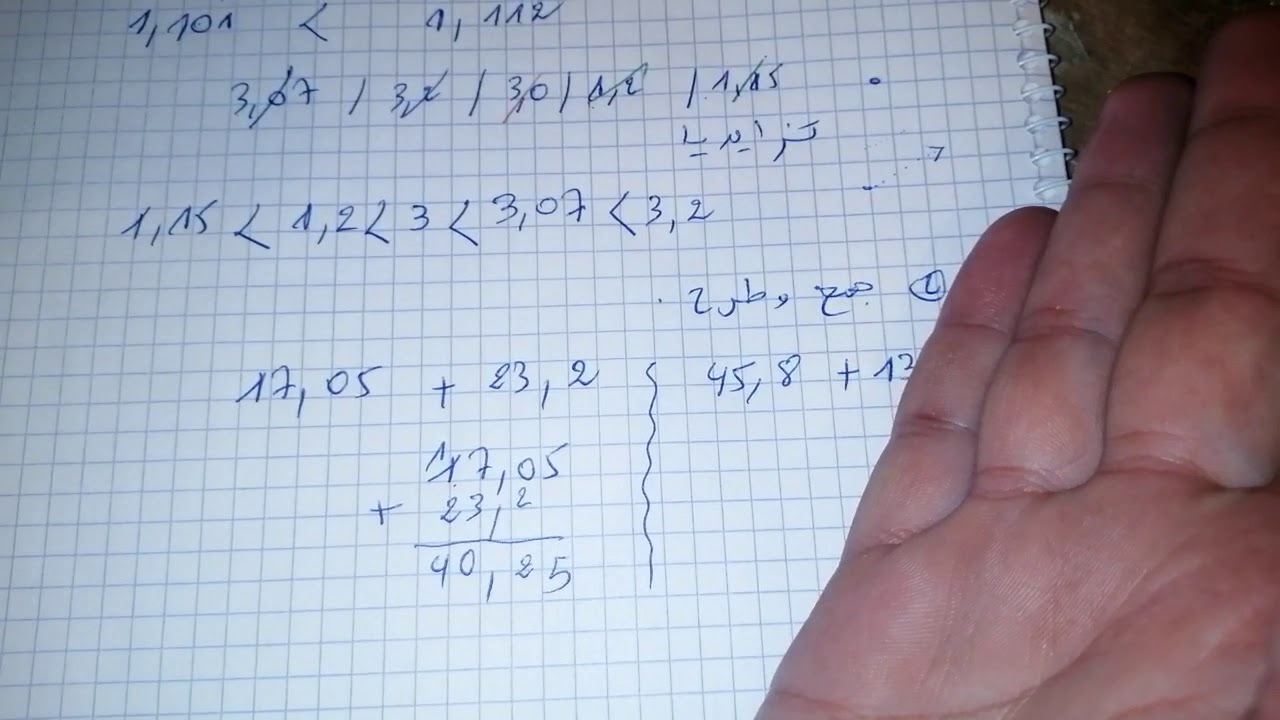 1,101 < 1,112
3,07 | 3,2 | 3,0 | 1,2 | 1,15 .
تزايديا
1,15 < 1,2 < 3 < 3,07 < 3,2
17,05 + 23,2 45,8 + 1
17,05
+ 23,2
40,25